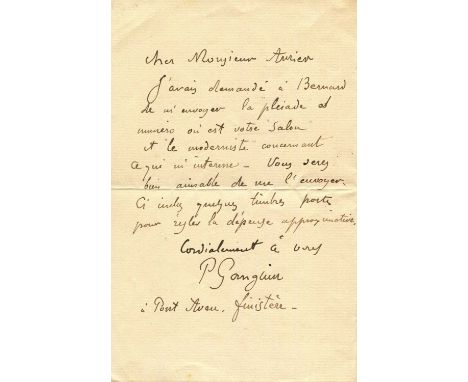 Cher Monsieur Aurier
J'avais demandé à Bernard
de m'envoyer la pleiade et
numero où est votre Salon
et le moderniste concernant
ce qui m'interesse - Vous serez
bien aimable de me l'envoyer.
Ci inclus quelques timbres poste
pour régler la dépense approximative.
Cordialement à vous
P Gauguin
à Pont Aven. finistère -